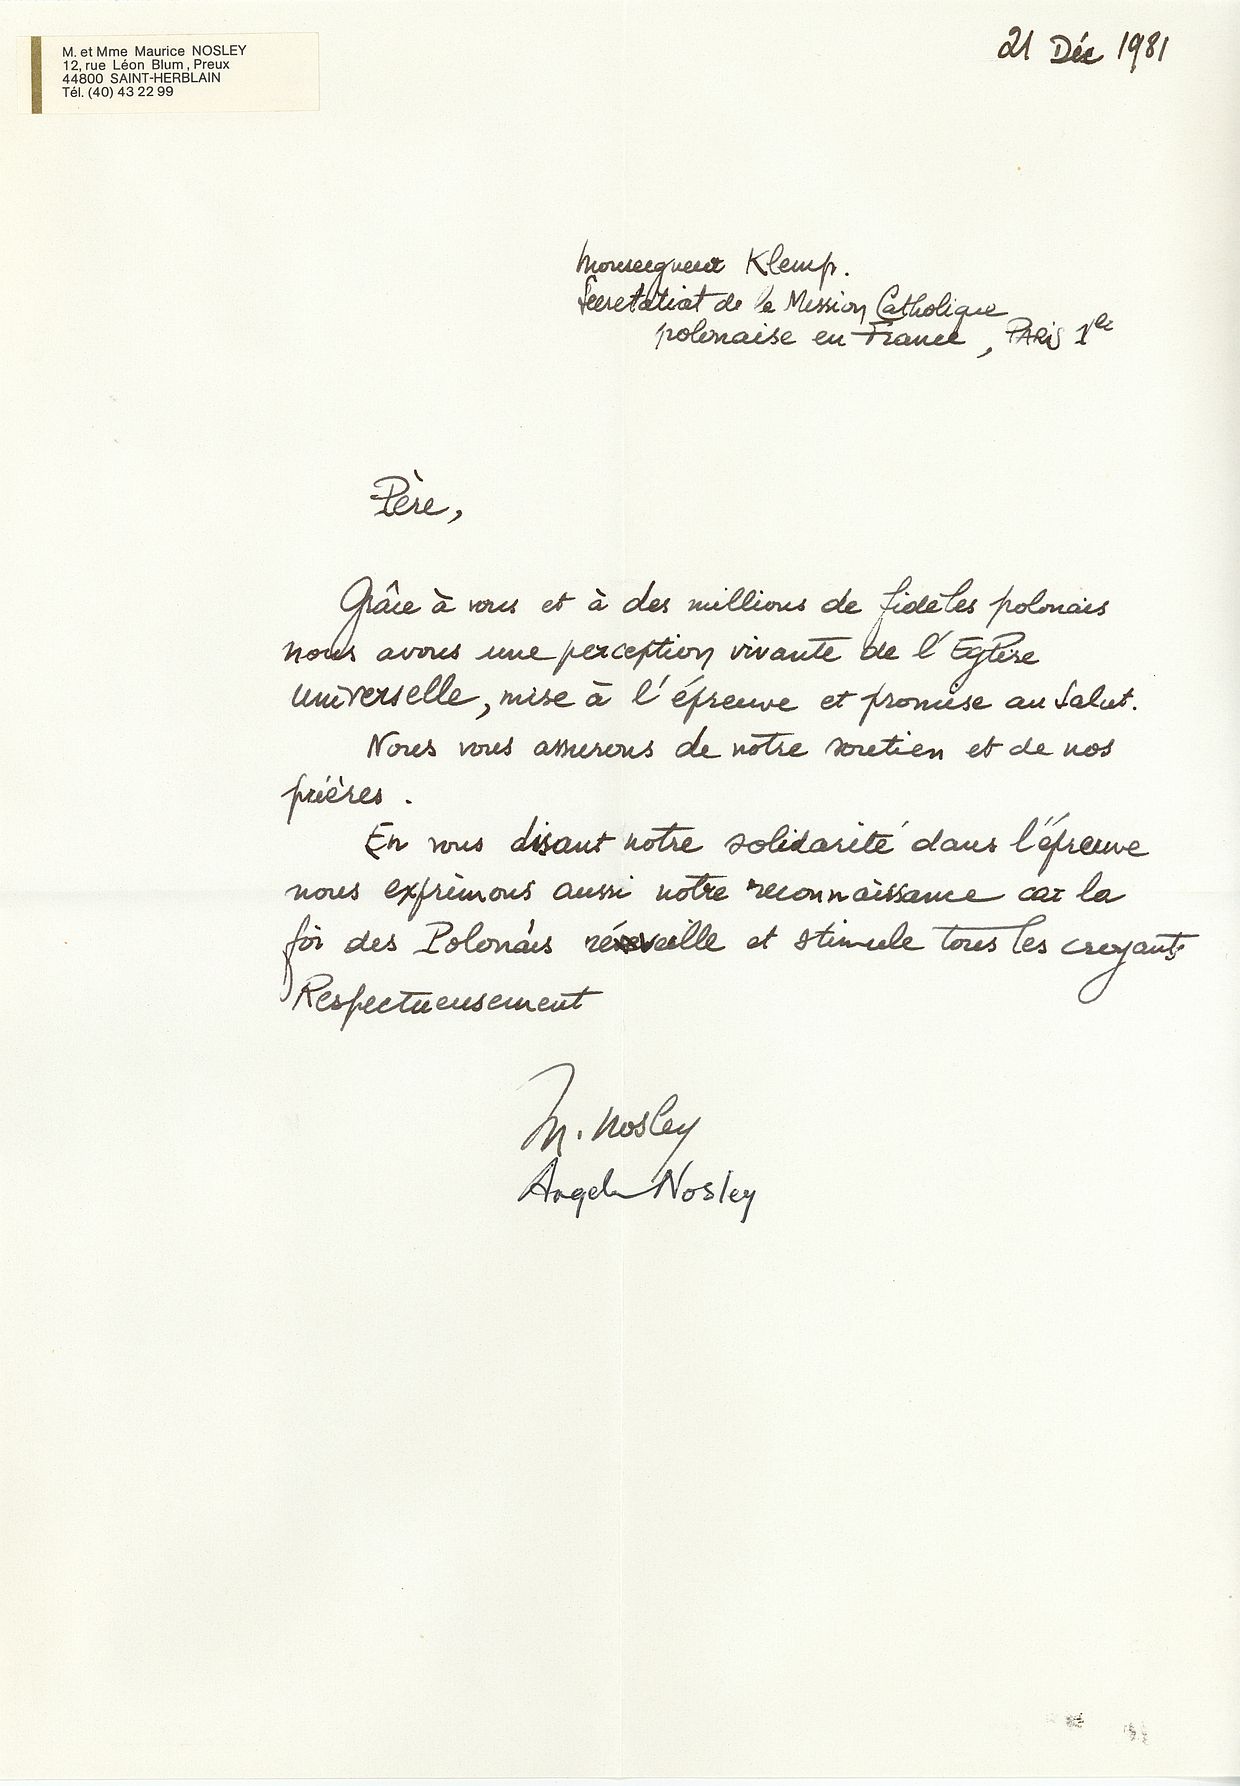 M. et Mme Maurice NOSLEY
12, rue Léon Blum, Preux
44800 SAINT-HERBLAIN
Tél. (40) 43 22 99
21 Déc 1981
Monseigneur Klemp.
Secretatiat de la Mission Catholique
polonaise en France, PARIS 1er
Père,
Grâce à vous et à des millions de fidèles polonais
nous avons une perception vivante de l'Eglise
universelle, mise à l'épreuve et promise au Salut.
Nous vous assurons de notre soutien et de nos
prières.
En vous disant notre solidarité dans l'épreuve
nous exprimons aussi notre reconnaissance car la
foi des Polonais réveille et stimule tous les croyants
Respectueusement
M. Nosley
Angela Nosley